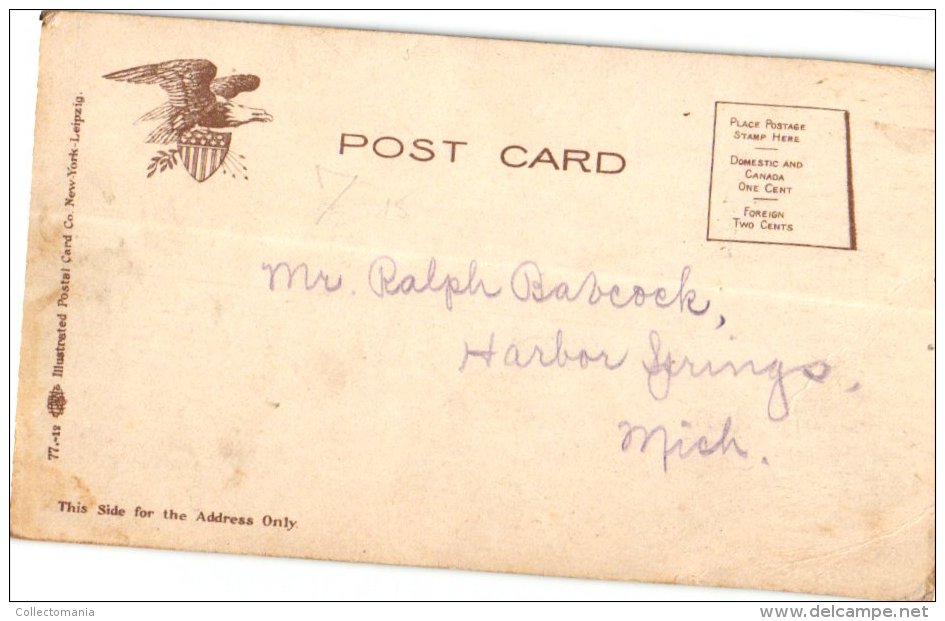 POST CARD
PLACE POSTAGE
STAMP HERE
DOMESTIC AND
CANADA
ONE CENT
FOREIGN
TWO CENTS
Mr. Ralph Babcock,
Harbor Springs,
Mich.
77.-12 Illustrated Postal Card Co. New-York-Leipzig.
This Side for the Address Only.
Collectomania
www.delcampe.net